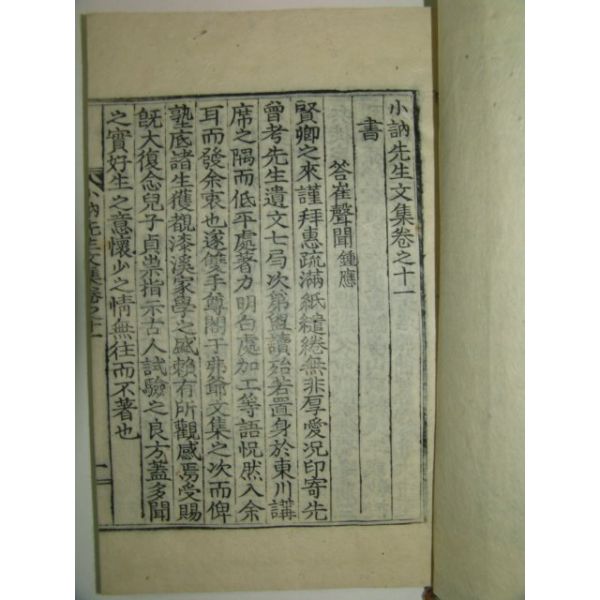 小訥先生文集卷之十一
書
答崔聲聞鍾應
賢卿之來謹拜惠疏滿紙繾綣無非厚愛況印寄先
曾考先生遺文七局次第盥讀殆若置身於東川講
席之隅而低平處著力明白處加工等語怳然入余
耳而發余衷也遂雙手尊閣于弗爺文集之次而俾
塾底諸生獲覩漆溪家學之盛賴有所觀感焉受賜
旣大復念兒子貞 指示古人試驗之良方蓋多聞
之實好生之意懷少之情無往而不著也
小訥先生文集卷之十一
一